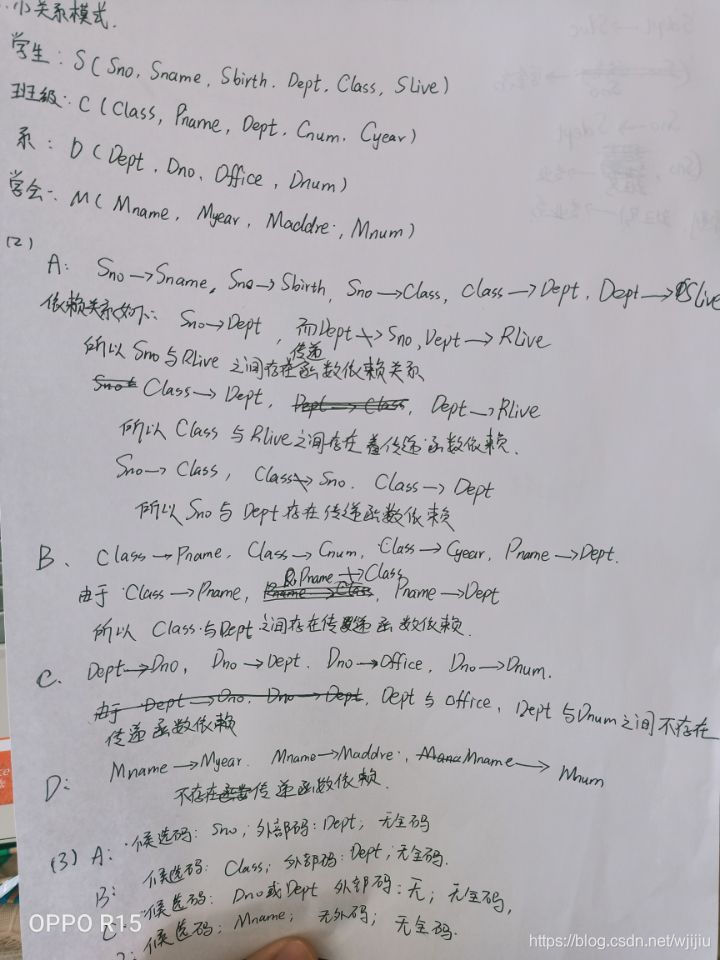 小关系模式.
学生: S ( Sno, Sname, Sbirth. Dept, Class, SLive)
班级: C ( Class, Pname, Dept. Cnum. Cyear)
系: D ( Dept, Dno, Office, Dnum)
学会: M ( Mname, Myear, Maddre, Mnum)
(2)
A: Sno→Sname, Sno→Sbirth, Sno→Class, Class→Dept, Dept→SLive
依赖关系如下: Sno→Dept, 而Dept↛Sno, Dept→RLive
所以 Sno与RLive之间存在传递函数依赖关系
Class→Dept, Dept→Class, Dept→RLive
所以 Class 与 RLive之间存在着传递函数依赖.
Sno→Class, Class↛Sno. Class→Dept
所以 Sno与 Dept 存在传递函数依赖
B. Class→Pname. Class→Cnum, Class→Cyear, Pname→Dept.
由于 Class→Pname, Pname↛Class, Pname→Dept
所以 Class与Dept之间存在传递函数依赖.
C. Dept→Dno, Dno→Dept. Dno→Office, Dno→Dnum.
由于 Dept→Dno, Dno→Dept, Dept 与 Office, Dept 与Dnum之间不存在
传递函数依赖
D: Mname→Myear. Mname→Maddre, Mname→Mnum
不存在传递函数依赖.
(3) A: 候选码: Sno; 外部码: Dept; 无全码
B: 候选码: Class; 外部码: Dept; 无全码.
C: 候选码: Dno或Dept 外部码: 无; 无全码,
候选码: Mname; 无外码; 无全码.
OPPO R15
https://blog.csdn.net/wjijiu